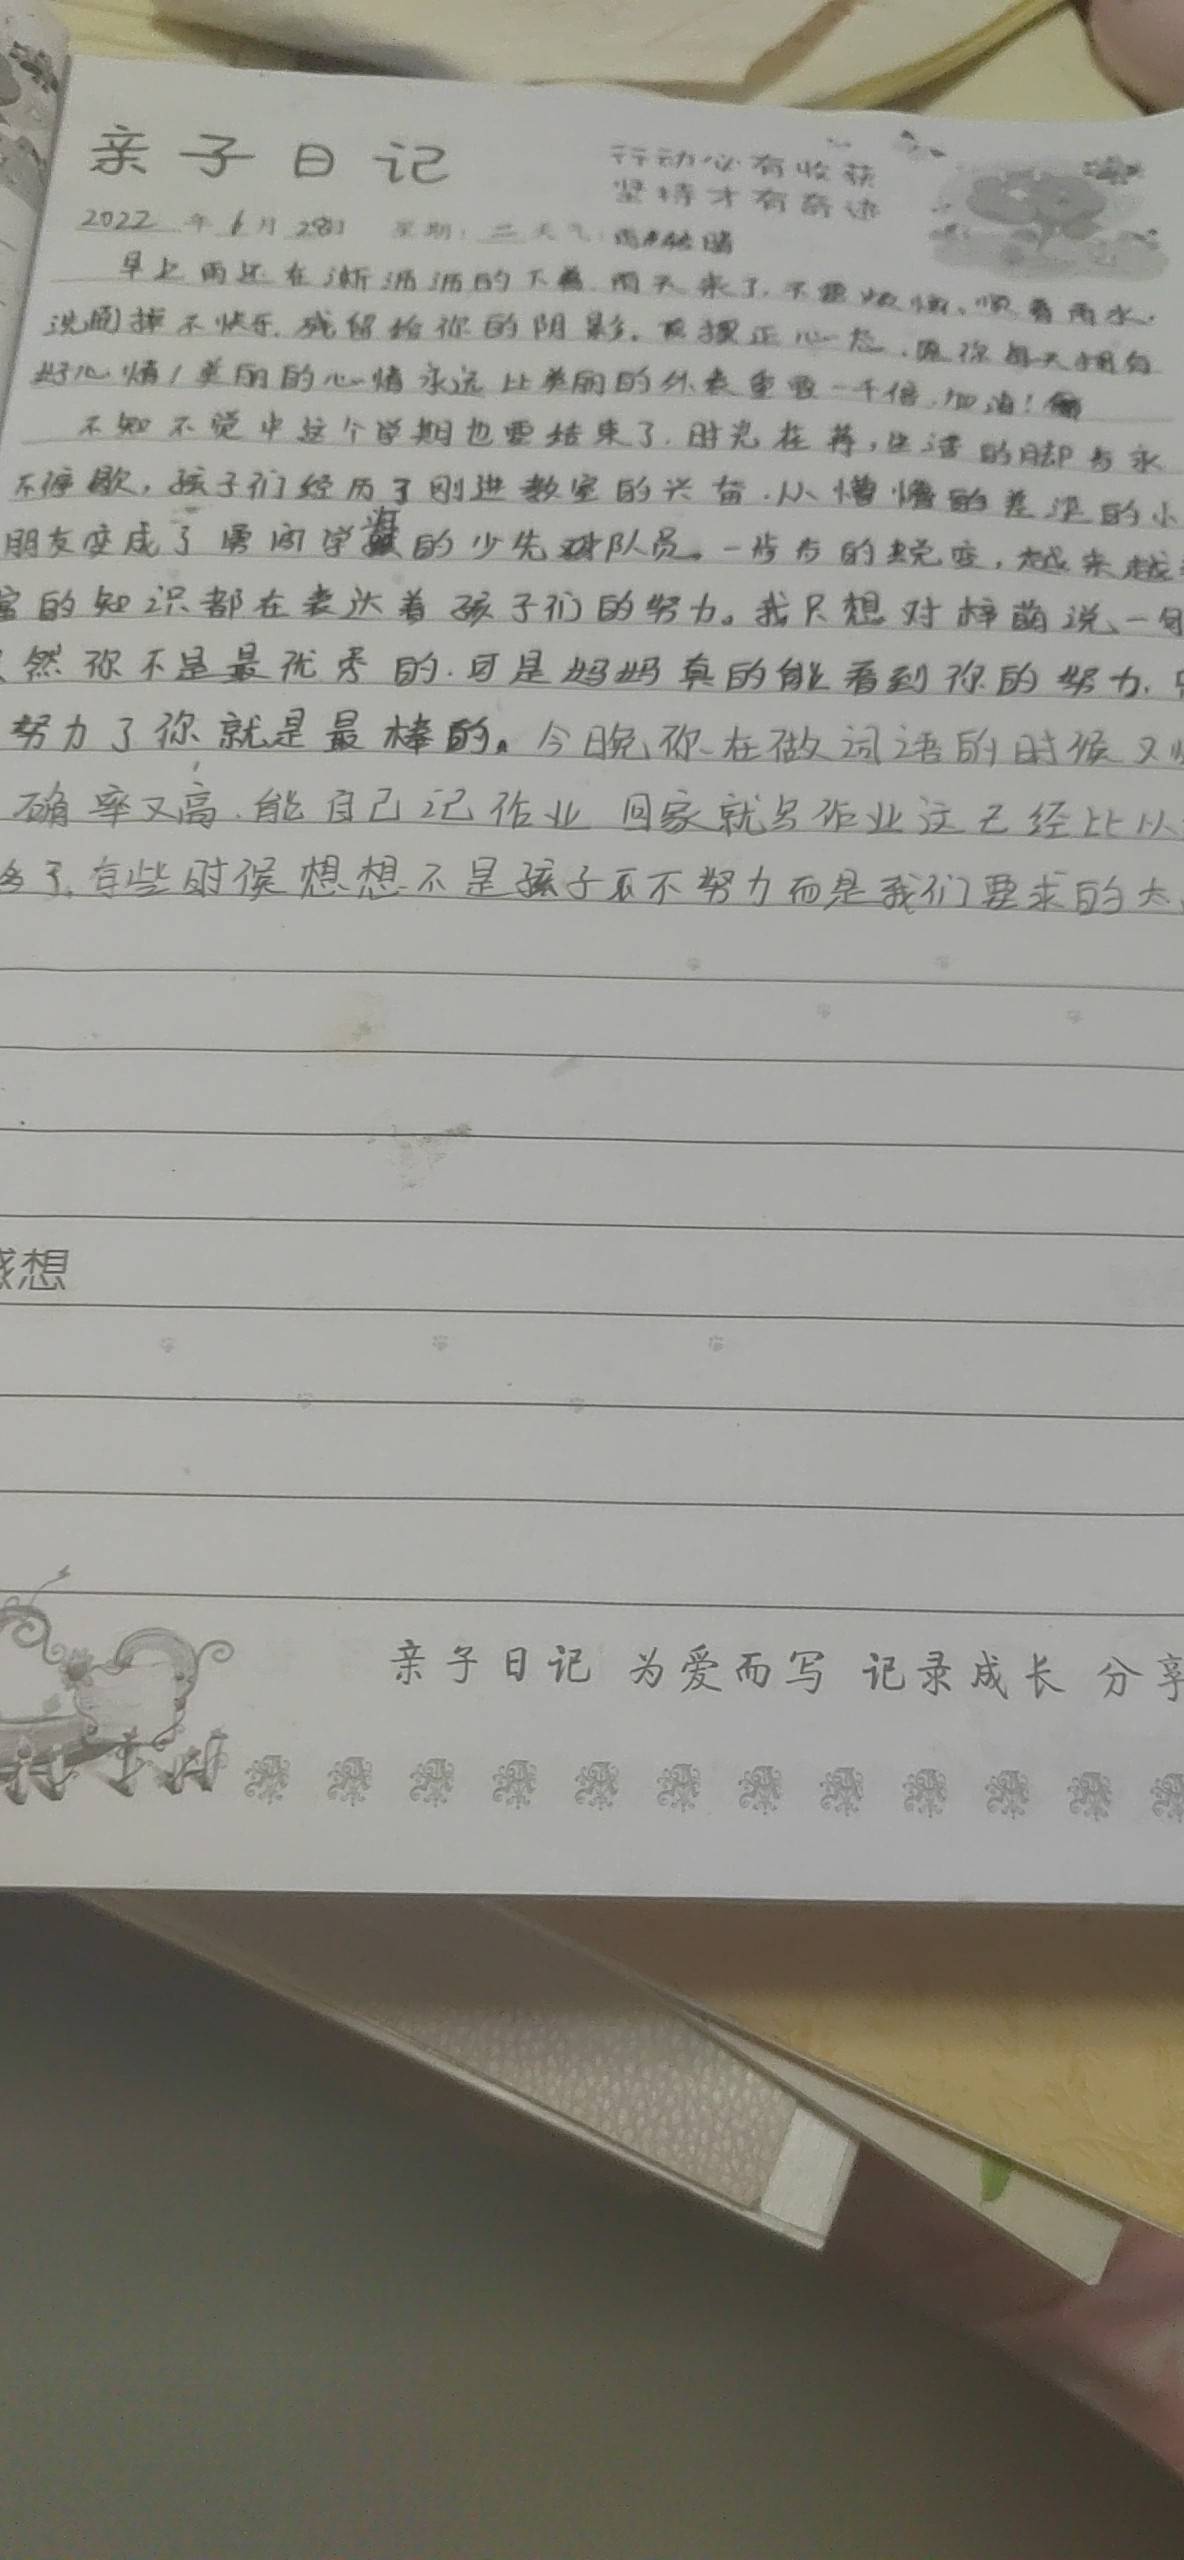 亲子日记
行动必有收获
坚持才有奇迹
2022年6月28日 星期：二 天气：雨转晴
早上雨还在淅沥沥的下着.雨天来了.不要烦恼、顺着雨水.
洗刷掉不快乐.残留给你的阴影.摆正心态.愿你每天拥有
好心情！美丽的心情永远比美丽的外表重要一千倍.加油！
不知不觉中这个学期也要结束了.时光荏苒,生活的脚步永
不停歇,孩子们经历了刚进教室的兴奋.从懵懂的差涩的小
朋友变成了勇闯学海的少先队员。一步步的蜕变,越来越
富的知识都在表达着孩子们的努力。我只想对梓萌说、一句
然你不是最优秀的.可是妈妈真的能看到你的努力.
努力了你就是最棒的。今晚你在做词语的时候又快
确率又高.能自己记作业 回家就写作业这已经比从
多了.有些时候想想不是孩子不努力而是我们要求的太
感想
亲子日记 为爱而写 记录成长 分享